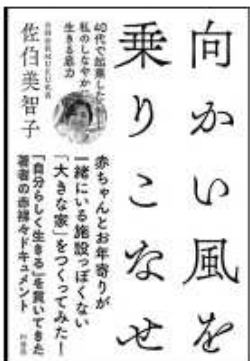 向かい風を
乗りこなせ
40代で起業した
私のしなやかに
生きる底力
佐伯美智子
赤ちゃんとお年寄りが
一緒にいる施設っぽくない
「大きな家」をつくってみた!
「自分らしく生きる」を貫いてきた
著者の赤裸々ドキュメント